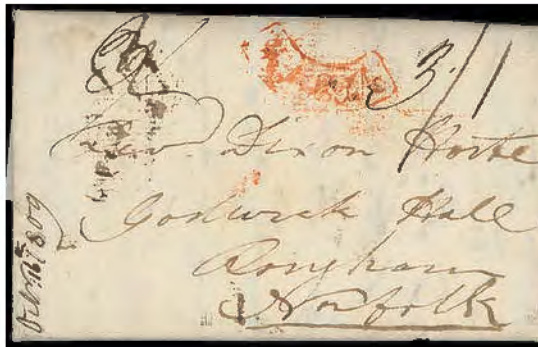 3/1
Revd. Dixon Hoste
Godwick Hall
Rougham
Norfolk
1809